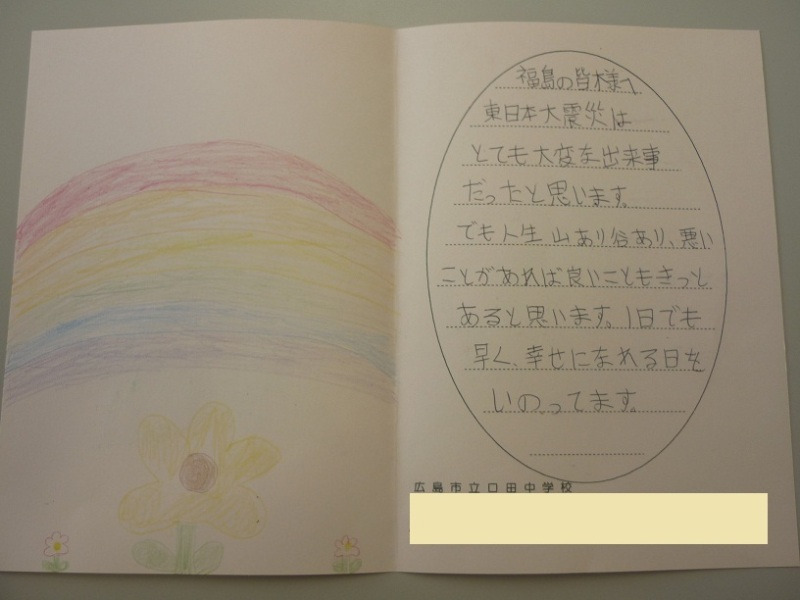 福島の皆様へ
東日本大震災は
とても大変な出来事
だったと思います。
でも人生山あり谷あり、悪い
ことがあれば良いこともきっと
あると思います。1日でも
早く、幸せになれる日を
いのってます。
広島市立口田中学校